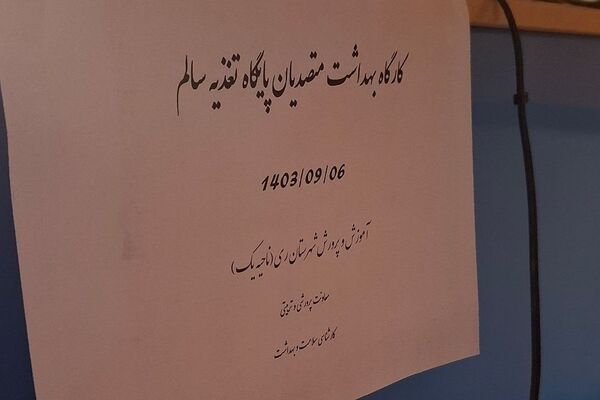 کارگاه بهداشت متصدیان پایگاه تغذیه سالم
1403/09/06
آموزش و پرورش شهرستان ری (ناحیه یک)
معاونت پرورشی و تربیتی
کارشناسی سلامت و بهداشت